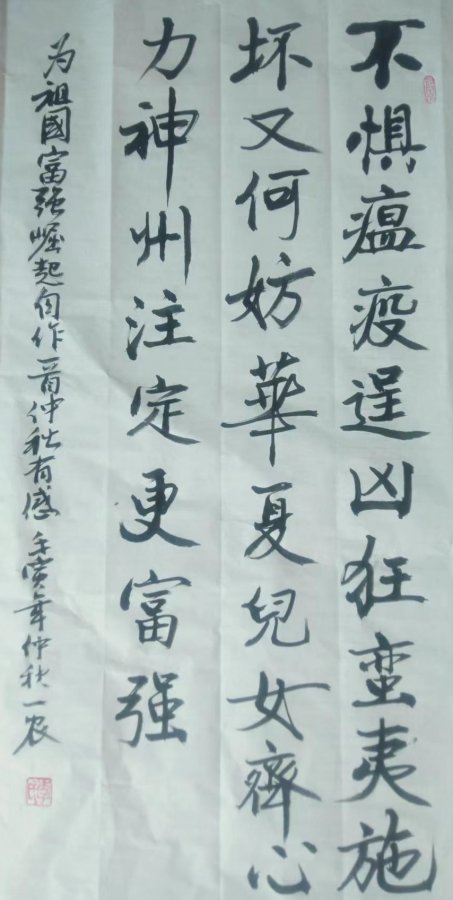 不惧瘟疫逞凶狂蛮夷施
坏又何妨華夏兒女齊心
力神州注定更富强
为祖國富强崛起自作一首仲秋有感 壬寅年仲秋一农